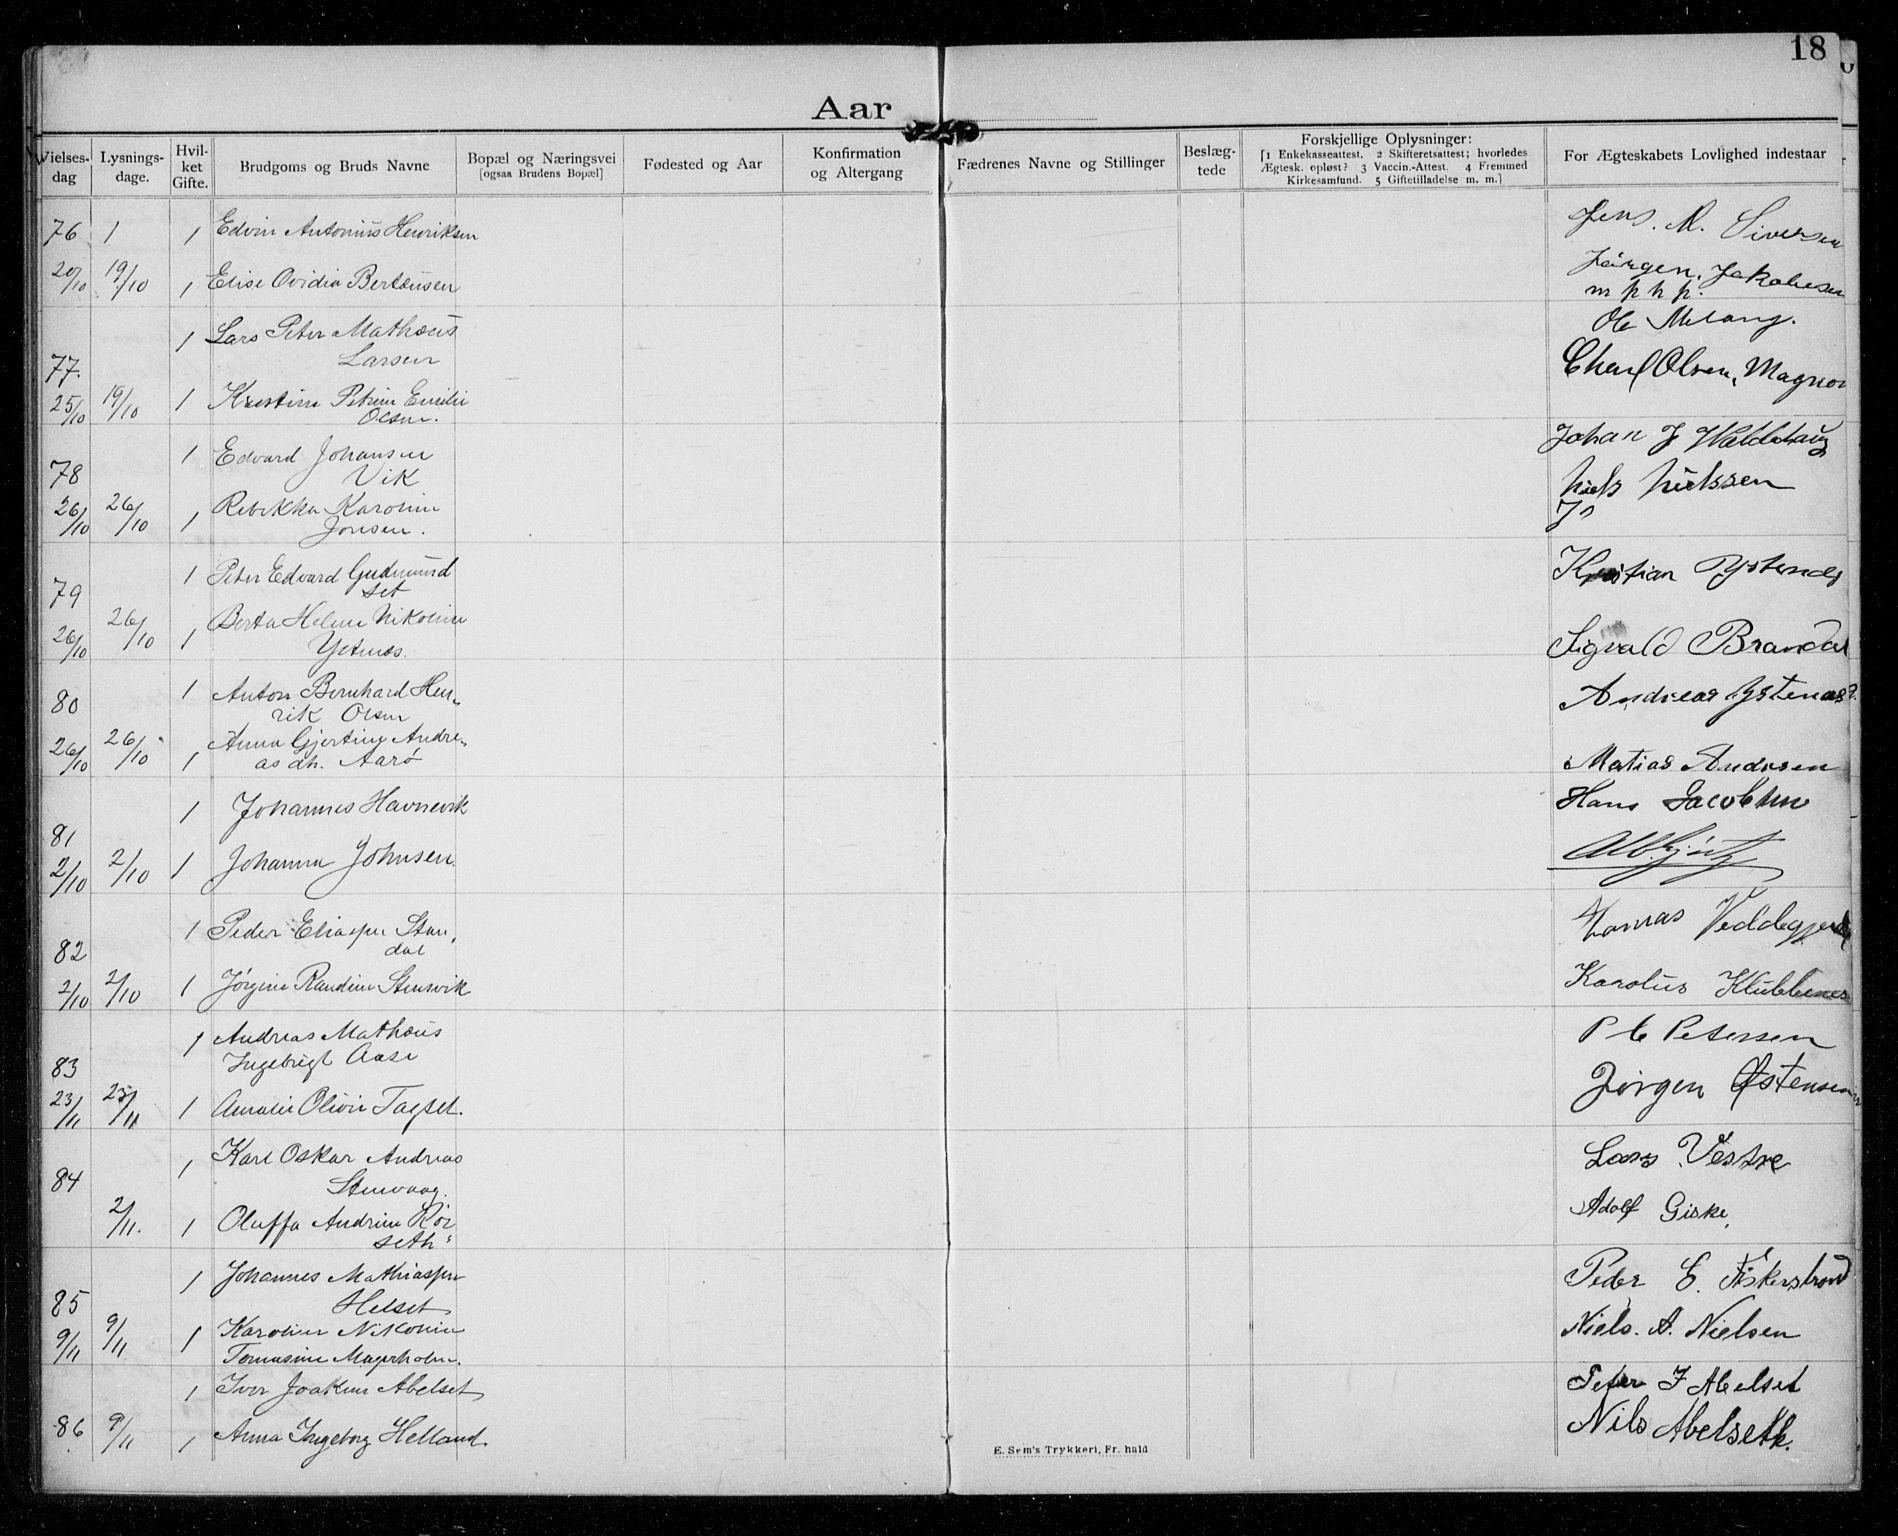 18
Aar
Vielses-dag
Lysnings-dage.
Hvil-ket Gifte.
Brudgoms og Bruds Navne
Bopæl og Næringsvei
[ogsaa Brudens Bopæl]
Fødested og Aar
Konfirmation og Altergang
Fædrenes Navne og Stillinger
Beslæg-tede
Forskjellige Oplysninger:
[1 Enkekasseattest. 2 Skifteretsattest; hvorledes
Ægtesk. opløst? 3 Vaccin.-Attest. 4 Fremmed
Kirkesamfund. 5 Giftetilladelse m. m.]
For Ægteskabets Lovlighed indestaar
76 1 1 Edvin Antonius Henriksen Jens. M. Siversen
20/10 19/10 1 Elise Ovidia Bertéusen Jørgen. Jakobsen
m p h p.
1 Lars Peter Mathæus Ole
Larsen
77. Olsen, Magnor
25/10 19/10 1 Kristine Petrine Emilie
Olsen.
1 Edvard Johansen Johan J
78 Vik Niels Nielssen
26/10 26/10 1 Rebekka Karoline
Jonsen.
1 Peter Edvard Gudmund Kristian Ystenes
79 set
26/10 1 Berta Helene Nikoline
26/10 Ystenes. Sigvald Brandal
1 Anton Bernhard Hen- Andreas Ystenes
80 rik Olsen
26/10 26/10 Anna Gjertine Andre-
1 as dtr. Aarø Matias Andresen
1 Johannes Havnevik Hans Jacobsen
81
2/10 2/10 1 Johanna Johnsen.
1 Peder Eliassen Stan- Veddegjerde
82 dal
2/10 2/10 1 Jørgine Randine Stensvik Karolus Klubbenes
1 Andreas Mathæus P C Petersen
83 Ingebrigt Aase
23/11 23/11 1 Amalie Olivie Tagset. Jørgen Østensen
1 Karl Oskar Andreas Lars Vestre
84 Stenvaag.
2/11. 1 Oluffa Andrine Rør Adolf Giske,
seth
1 Johannes Mathiassen Peder E. Fiskerstrand
85 Helset
9/11 9/11 1 Karoline Nikoline Niels. A. Nielsen
Tomasine Magerholm.
1 Iver Joakim Abelset Peter J Abelset
86 9/11 1 Anna Ingeborg Helland Nils Abelseth.
E. Sem's Trykkeri, Fr. hald